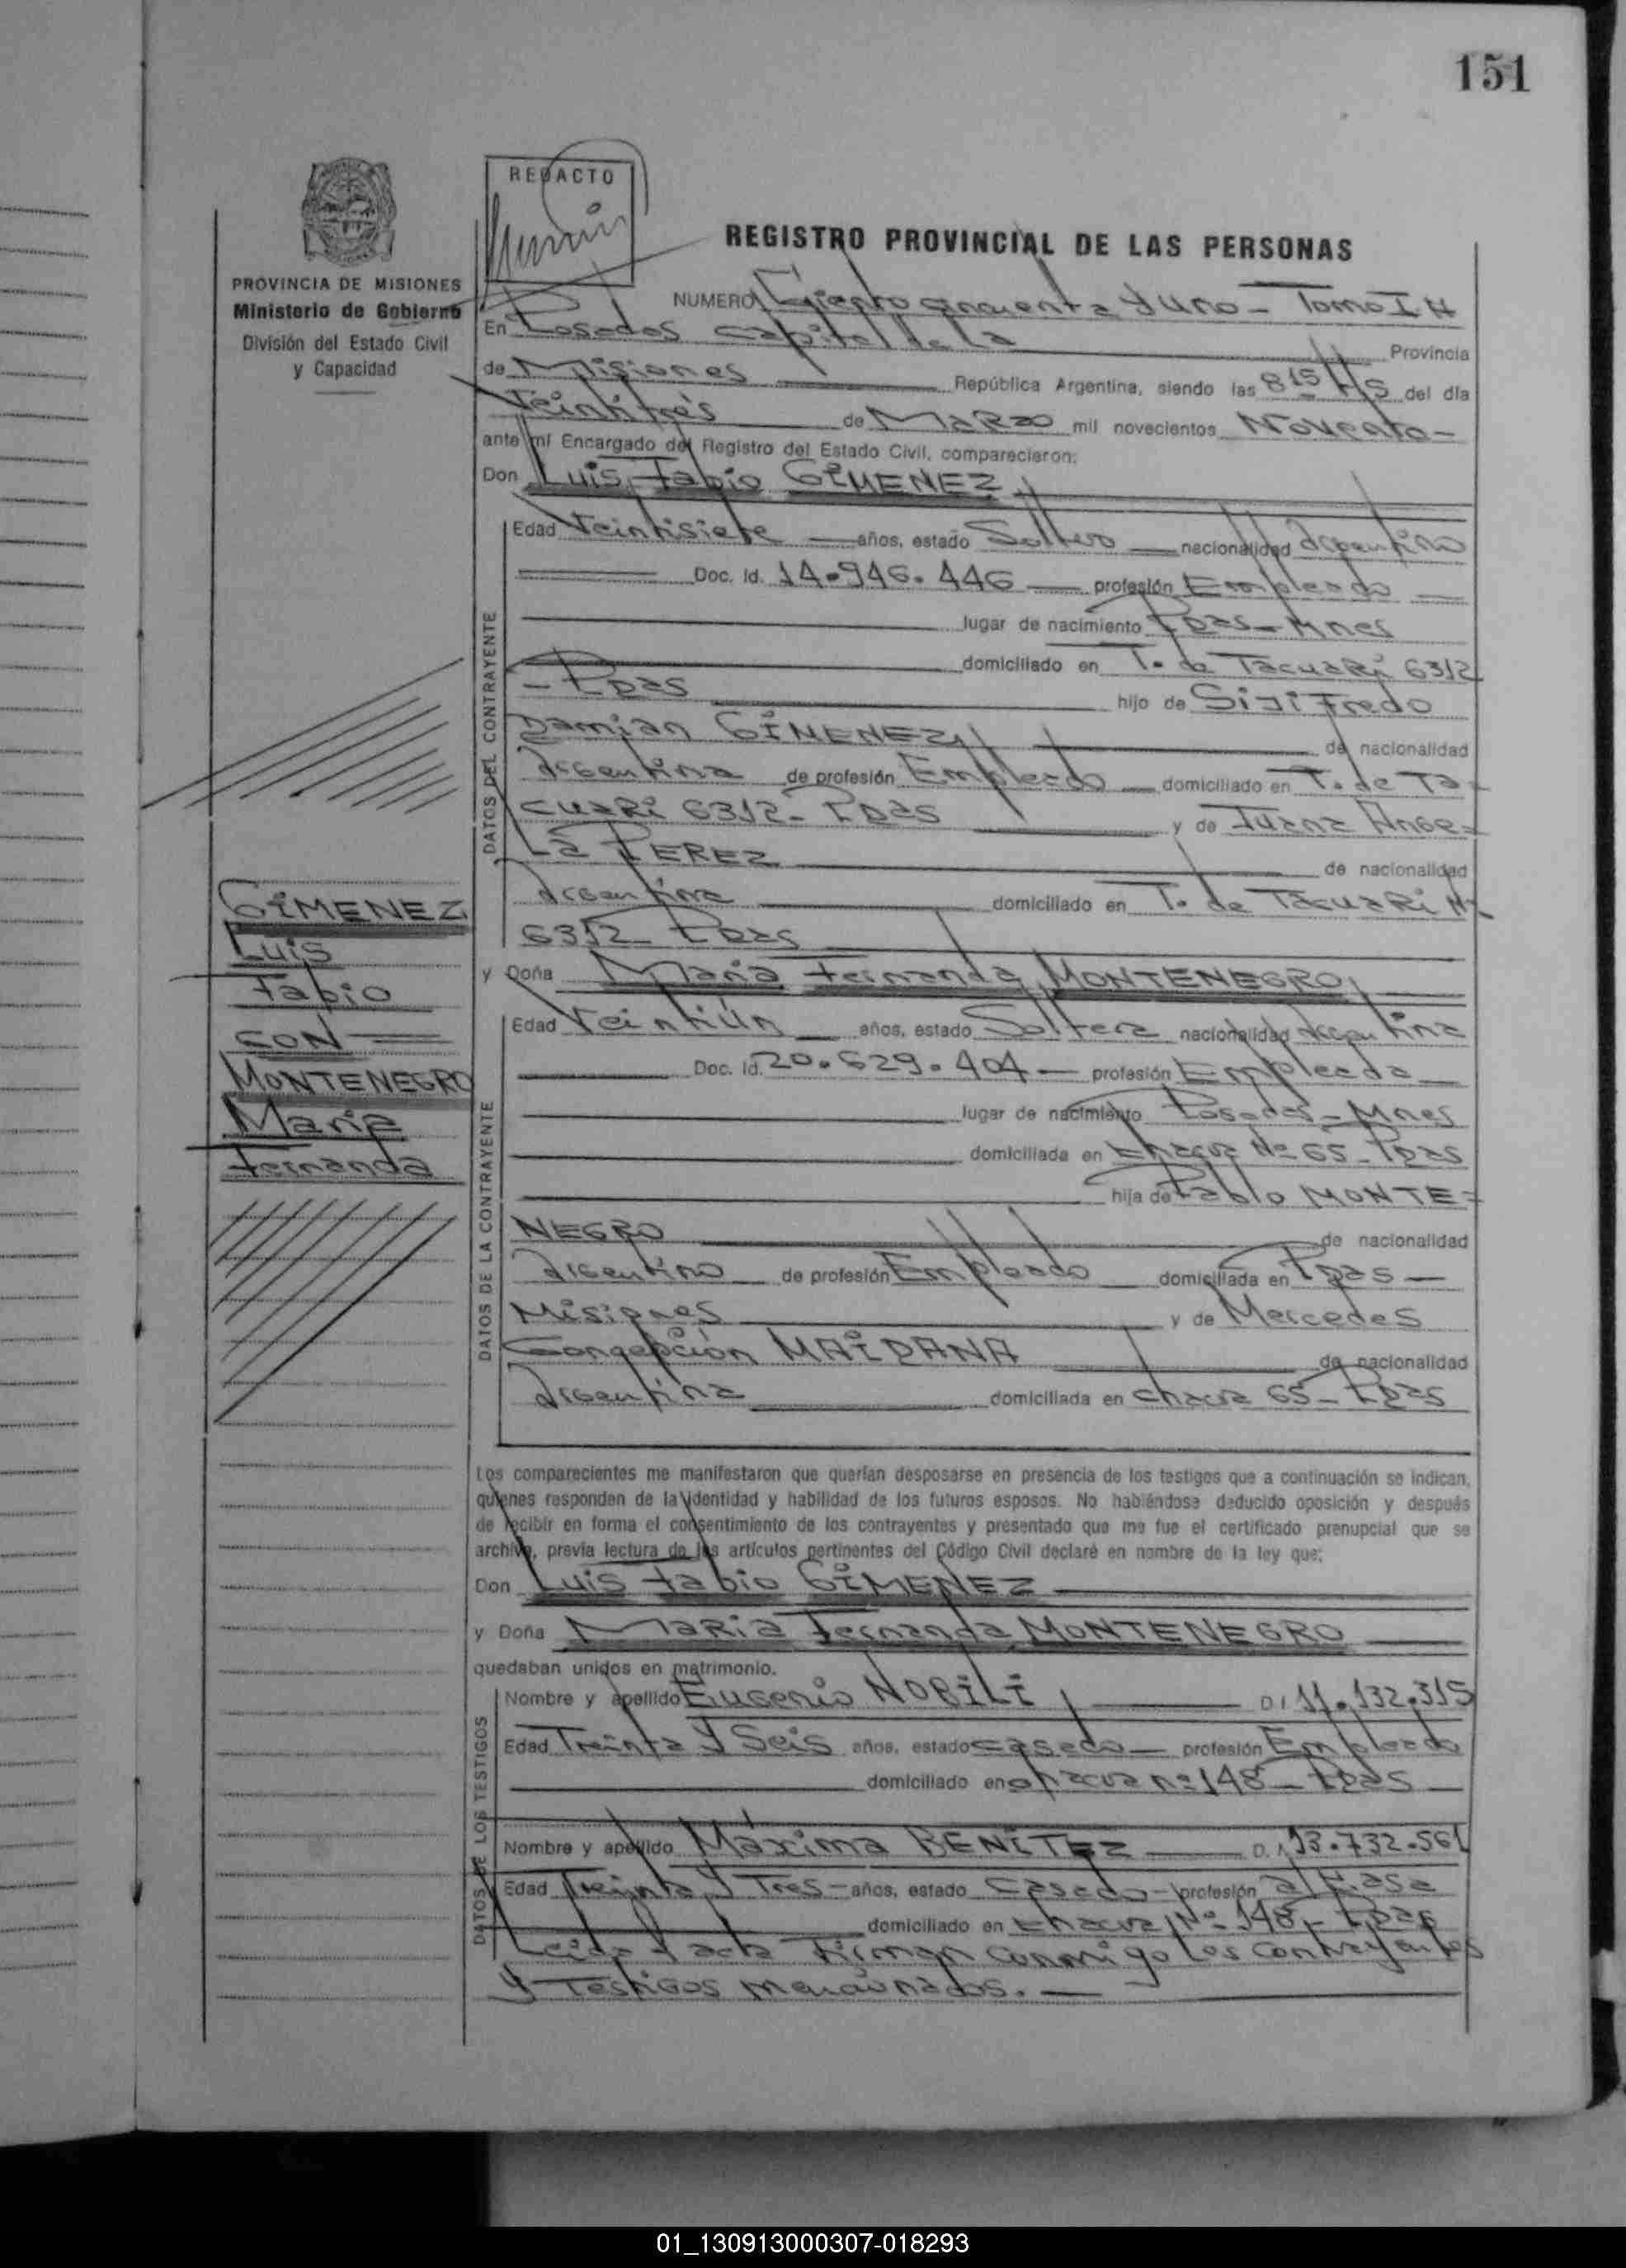 151
REDACTO
REGISTRO PROVINCIAL DE LAS PERSONAS
PROVINCIA DE MISIONES
Ministerio de Gobierno
División del Estado Civil
y Capacidad
NUMERO Ciento cincuenta y uno - Tomo I H
En Posadas capital de la Provincia
de Misiones República Argentina, siendo las 8 15 Hs del día
Veintitrés de MARZO mil novecientos Noventa -
ante mí Encargado del Registro del Estado Civil, comparecieron:
Don Luis Fabio GIMENEZ
Edad Veintisiete años, estado Soltero nacionalidad Argentino
Doc. Id. 14.946.446 profesión Empleado
lugar de nacimiento Pdas - Mnes
domiciliado en T. de TacuaRí 6312
- Pdas hijo de SiJiFredo
Damian GIMENEZ de nacionalidad
Argentina de profesión Empleado domiciliado en T. de Ta=
cuaRi 6312 - Pdas y de Juana Ange=
La PEREZ de nacionalidad
Argentina domiciliado en T. de TacuaRi Nº
6312 Pdas
y Doña Maria Fernanda MONTENEGRO
Edad Veintiún años, estado Soltera nacionalidad Argentina
Doc. Id. 20.629.404 profesión Empleada
lugar de nacimiento Posadas - Mnes
domiciliada en chacra Nº 65 - Pdas
hija de Pablo MONTE=
NEGRO de nacionalidad
Argentino de profesión Empleado domiciliada en Pdas -
Misiones y de Mercedes
Concepción MAIDANA de nacionalidad
Argentina domiciliada en chacra 65 - Pdas
DATOS DEL CONTRAYENTE
DATOS DE LA CONTRAYENTE
GIMENEZ
Luis
Fabio
CON
MONTENEGRO
Maria
Fernanda
Los comparecientes me manifestaron que querían desposarse en presencia de los testigos que a continuación se indican,
quienes responden de la identidad y habilidad de los futuros esposos. No habiéndose deducido oposición y después
de recibir en forma el consentimiento de los contrayentes y presentado que me fue el certificado prenupcial que se
archiva, previa lectura de los artículos pertinentes del Código Civil declaré en nombre de la ley que:
Don Luis Fabio GIMENEZ
y Doña MaRia Fernanda MONTENEGRO
quedaban unidos en matrimonio.
Nombre y apellido Eugenio NOBILI D.I 11.132.315
Edad Treinta y Seis años, estado casado profesión Empleado
domiciliado en chacra nº 148 - Pdas
Nombre y apellido Máxima BENITEZ D.I 13.732.561
Edad Treinta y Tres - años, estado casado - profesión a/casa
domiciliado en chacra Nº 148 - Pdas
DATOS DE LOS TESTIGOS
Leida el acta Firman conmigo Los contrayentes
y Testigos mencionados.
01_130913000307-018293